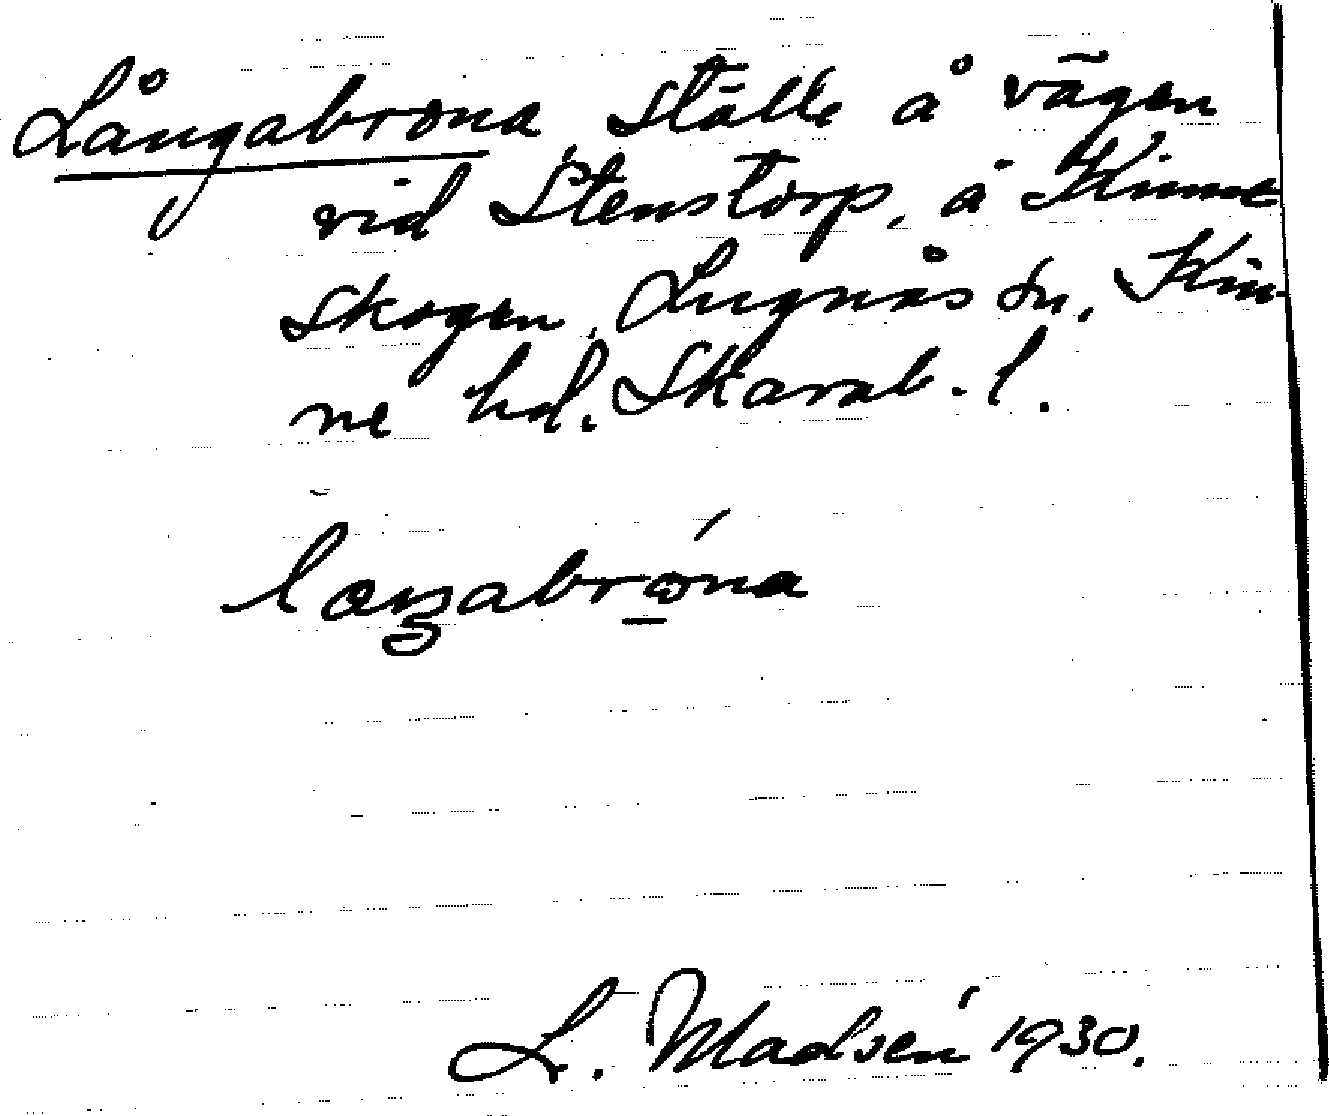 Långabrona, ställe å vägen
vid Stenstorp, å Kinne
skogen, Lugnås sn, Kin-
ne hd. Skarab. l.
L. Madsén 1930.